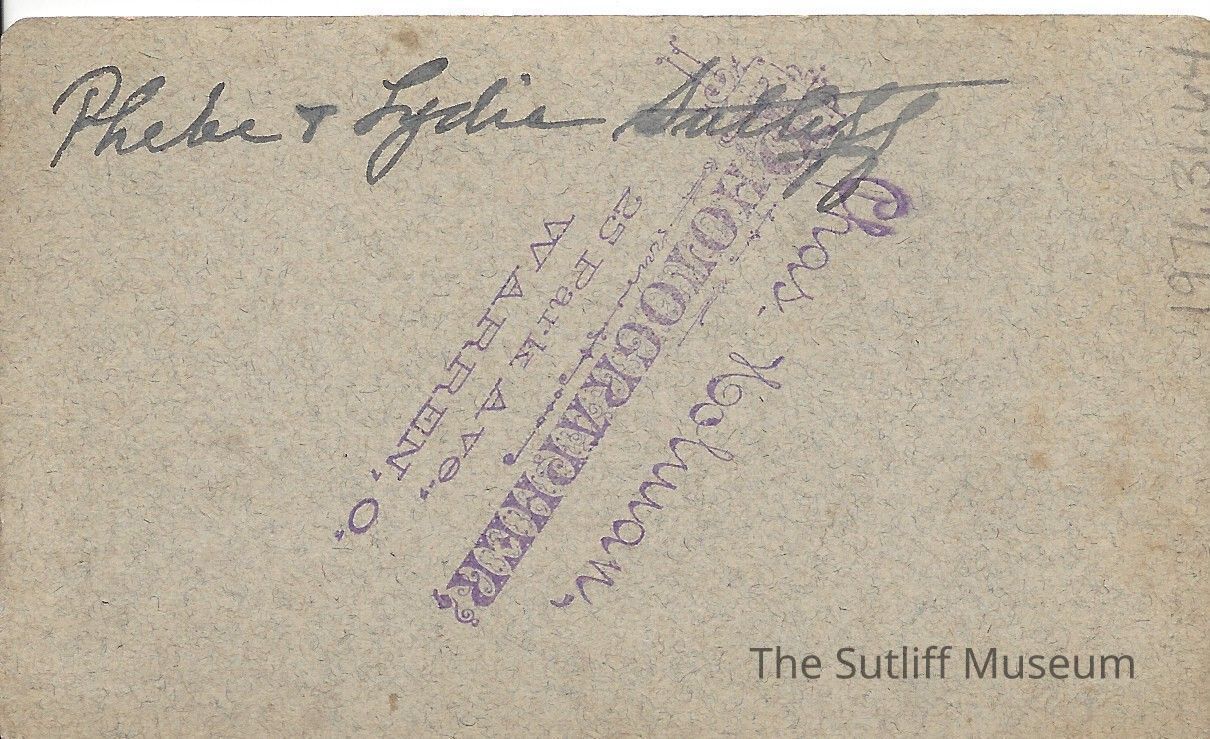 Phebe + Lydie Sutliff
Chas. Holman,
PHOTOGRAPHER,
25 Park Ave.,
WARREN, O.
The Sutliff Museum